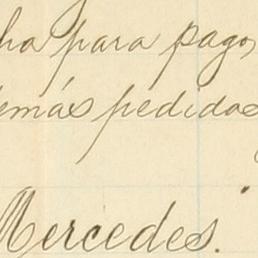 ha para pago,
emás pedidos
Mercedes.